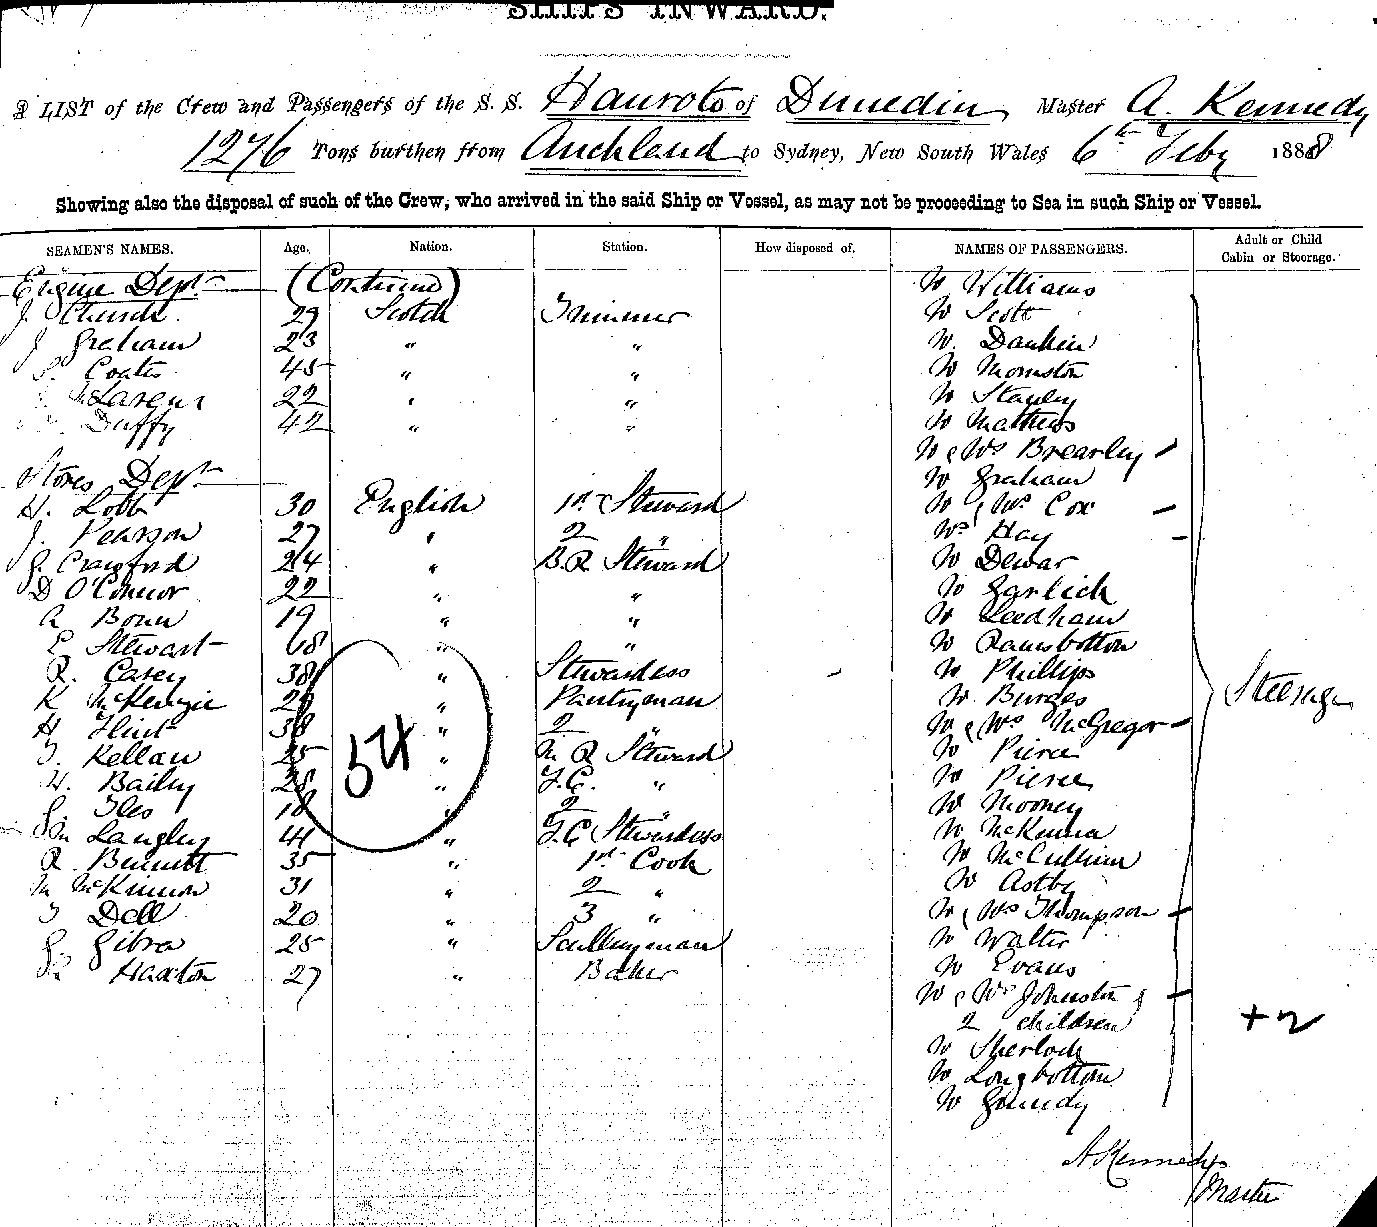 SHIPS INWARD.
A LIST of the Crew and Passengers of the S. S. Hauroto of Dunedin Master A. Kennedy
1276 Tons burthen from Auckland to Sydney, New South Wales 6th Feby 1888
Showing also the disposal of such of the Crew, who arrived in the said Ship or Vessel, as may not be proceeding to Sea in such Ship or Vessel.
SEAMEN'S NAMES. Age. Nation. Station. How disposed of. NAMES OF PASSENGERS. Adult or Child Cabin or Steerage.
Engine Dept (Continued) Mr Williams
J. Church 27 Scotch Trimmer Mr Scott
J Graham 23 " " Mr. Dankin
Coats 45 " " Mr Morriston
McLaren 22 " " Mr Stanley
Duffy 42 " " Mr Mathews
Mr & Mrs Brearley -
Stores Dept Mr Graham
H. Lobb 30 English 1st Steward Mr & Mrs Cox -
J. Pearson 27 " 2 " Mrs Hay -
G Crawford 24 " B.R. Steward Mr Dewar
D O'Connor 22 " " Mr Garlick
A Bonn 19 " " Mr Leedham
E Stewart 18 " " Mr Ramsbottom
R. Casey 38 " Stewardess - Mr Phillips Steerage
K McKenzie 29 " Pantryman Mr Burges
H Flint 38 " 2 " Mr & Mrs McGregor -
T. Kellan 25 54 " M R Steward Mr Pierce
H. Bailey 28 " F.C. " Mr Pierce
G. Iles 18 " 2 " Mr Mooney
M Langley 41 " F.C Stewardess Mr McKenna
R Bennett 35 " 1st Cook Mr McCullum
M McKinnon 31 " 2 " Mr Astby
T Dell 20 " 3 " Mr & Mrs Thompson -
G. Gibra 25 " Sculleryman Mr Walter
Haxton 27 " Baker Mr Evans
Mr & Mrs Johnston & -
2 children + 2
Mr Sherlock
Mr Longbottom
Mr
A Kennedy
Master